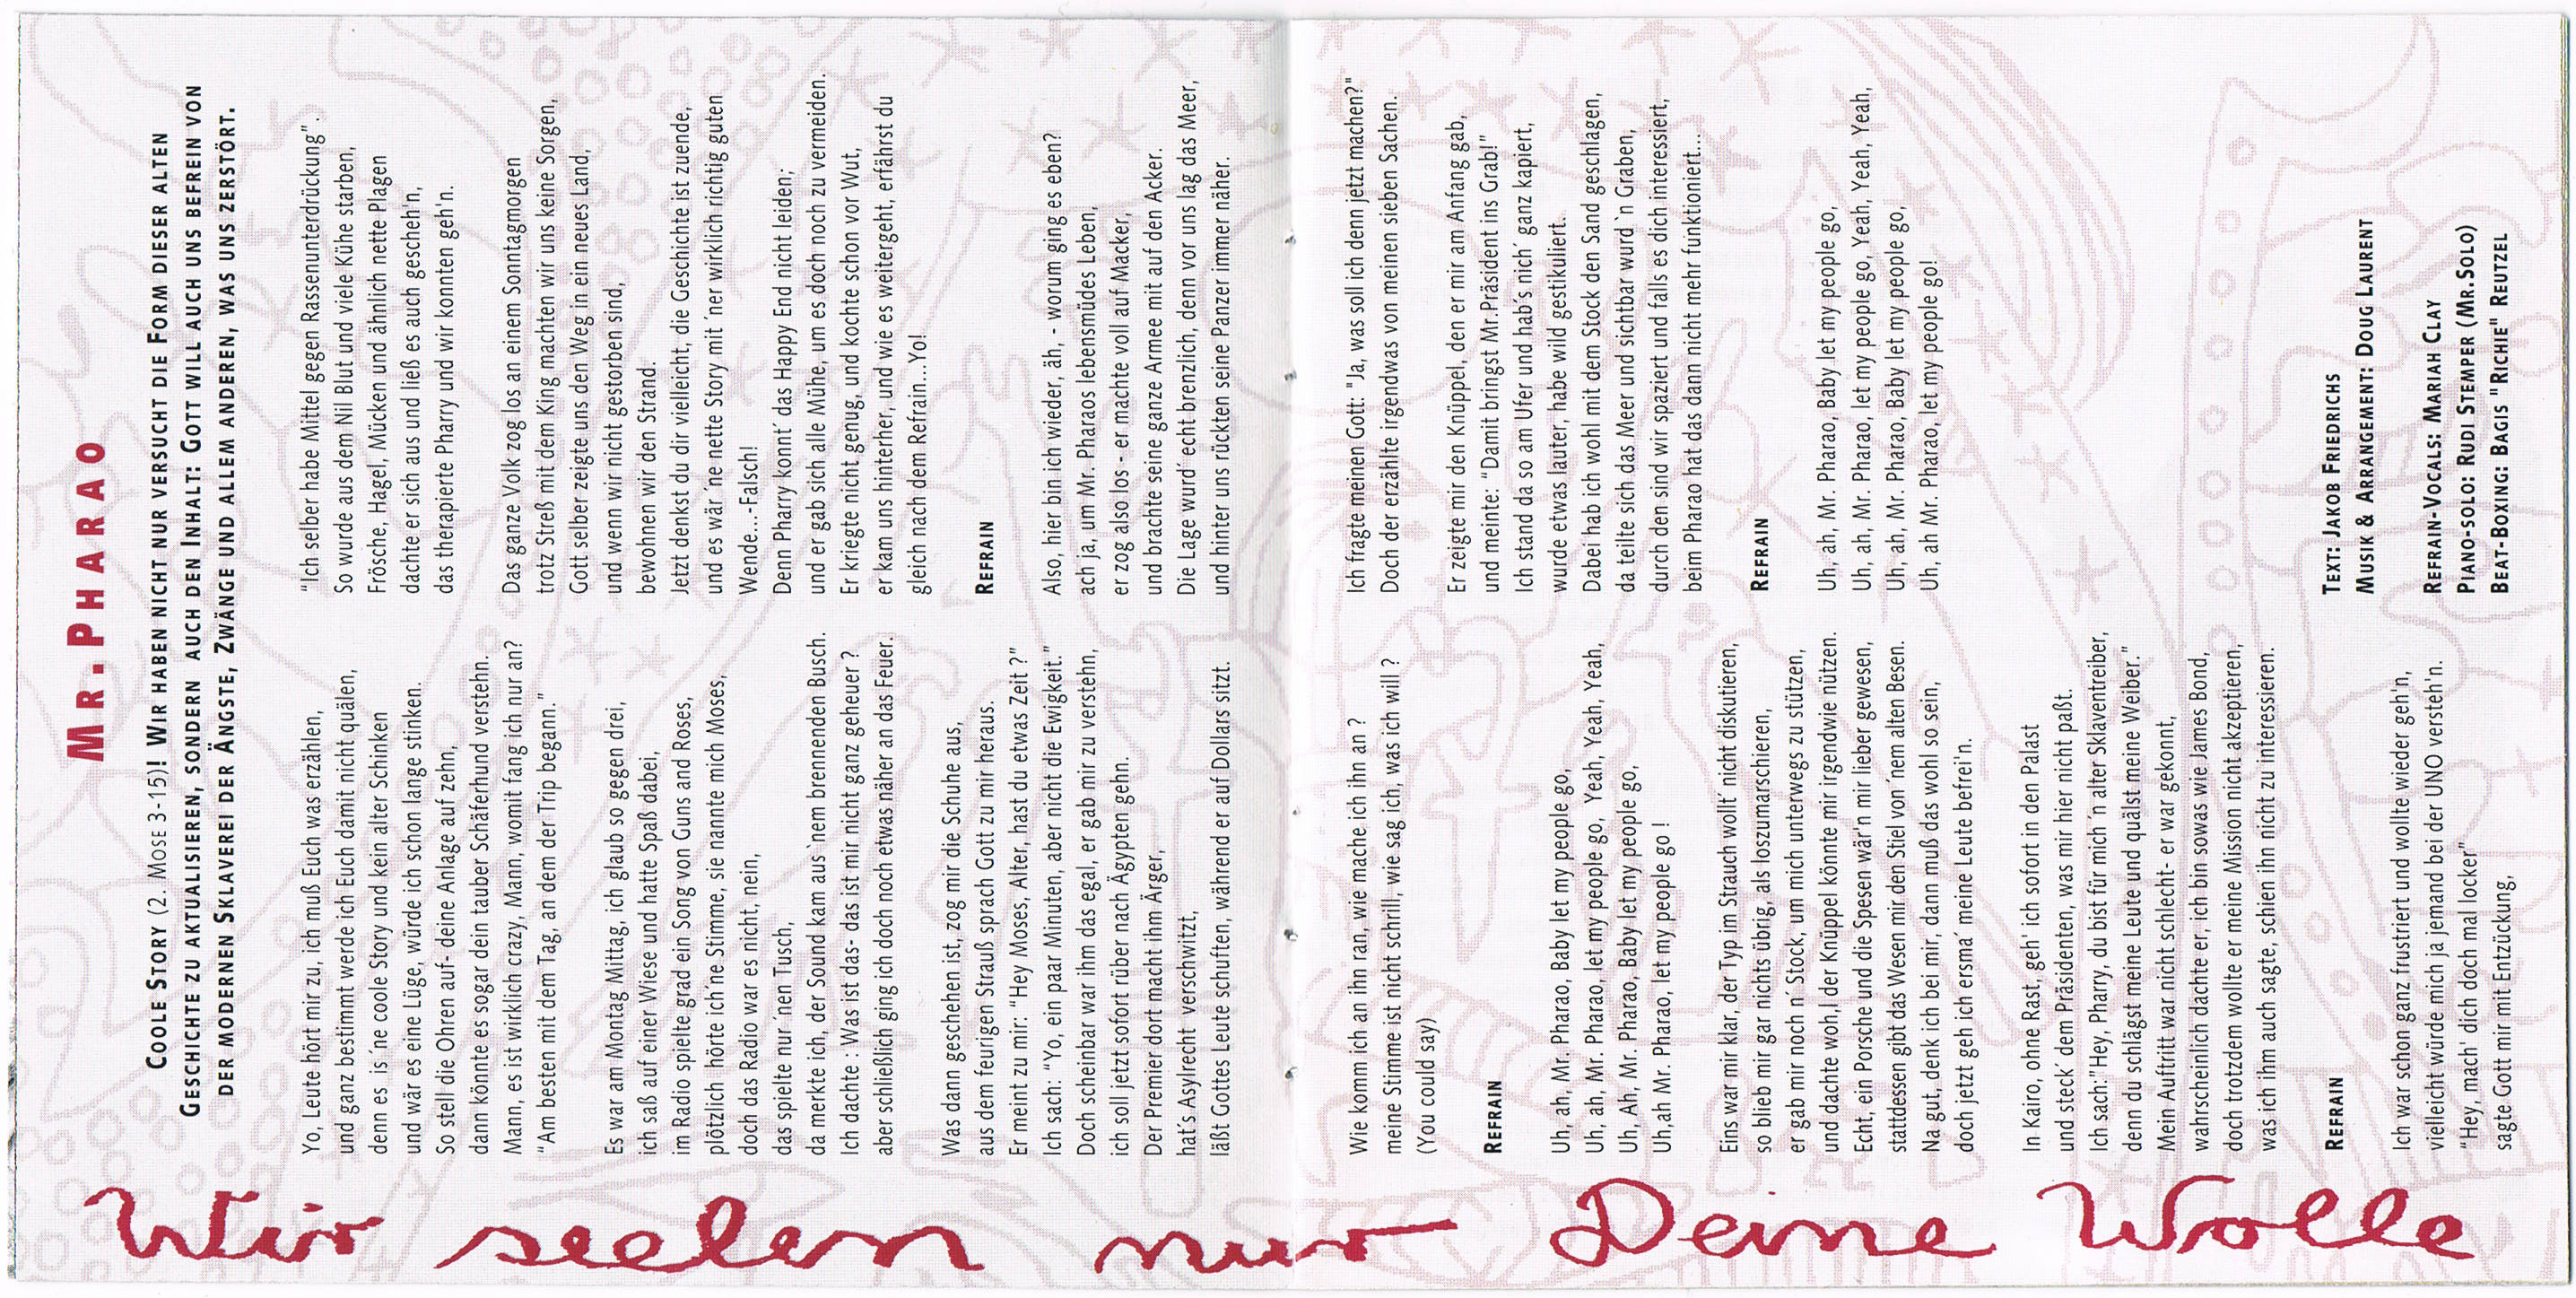 MR. PHARAO
COOLE STORY (2. MOSE 3-15)! WIR HABEN NICHT NUR VERSUCHT DIE FORM DIESER ALTEN
GESCHICHTE ZU AKTUALISIEREN, SONDERN AUCH DEN INHALT: GOTT WILL AUCH UNS BEFREIN VON
DER MODERNEN SKLAVEREI DER ÄNGSTE, ZWÄNGE UND ALLEM ANDEREN, WAS UNS ZERSTÖRT.
Yo, Leute hört mir zu, ich muß Euch was erzählen,
und ganz bestimmt werde ich Euch damit nicht quälen,
denn es is´ne coole Story und kein alter Schinken
und wär es eine Lüge, würde ich schon lange stinken.
So stell die Ohren auf- deine Anlage auf zehn,
dann könnte es sogar dein tauber Schäferhund verstehn.
Mann, es ist wirklich crazy, Mann, womit fang ich nur an?
“Am besten mit dem Tag, an dem der Trip begann.”
Es war am Montag Mittag, ich glaub so gegen drei,
ich saß auf einer Wiese und hatte Spaß dabei,
im Radio spielte grad ein Song von Guns and Roses,
plötzlich hörte ich´ne Stimme, sie nannte mich Moses,
doch das Radio war es nicht, nein,
das spielte nur ´nen Tusch,
da merkte ich, der Sound kam aus ´nem brennenden Busch.
Ich dachte : Was ist das- das ist mir nicht ganz geheuer ?
aber schließlich ging ich doch noch etwas näher an das Feuer.
Was dann geschehen ist, zog mir die Schuhe aus,
aus dem feurigen Strauß sprach Gott zu mir heraus.
Er meint zu mir: “Hey Moses, Alter, hast du etwas Zeit ?”
Ich sach: “Yo, ein paar Minuten, aber nicht die Ewigkeit.”
Doch scheinbar war ihm das egal, er gab mir zu verstehn,
ich soll jetzt sofort rüber nach Ägypten gehn.
Der Premier dort macht ihm Ärger,
hat´s Asylrecht verschwitzt,
läßt Gottes Leute schuften, während er auf Dollars sitzt.
Wie komm ich an ihn ran, wie mache ich ihn an ?
meine Stimme ist nicht schrill, wie sag ich, was ich will ?
(You could say)
REFRAIN
Uh, ah, Mr. Pharao, Baby let my people go,
Uh, ah, Mr. Pharao, let my people go, Yeah, Yeah, Yeah,
Uh, Ah, Mr. Pharao, Baby let my people go,
Uh,ah Mr. Pharao, let my people go !
Eins war mir klar, der Typ im Strauch wollt´ nicht diskutieren,
so blieb mir gar nichts übrig, als loszumarschieren,
er gab mir noch n´Stock, um mich unterwegs zu stützen,
und dachte wohl, der Knüppel könnte mir irgendwie nützen.
Echt, ein Porsche und die Spesen wär'n mir lieber gewesen,
stattdessen gibt das Wesen mir den Stiel von ´nem alten Besen.
Na gut, denk ich bei mir, dann muß das wohl so sein,
doch jetzt geh ich ersma´ meine Leute befrei'n.
In Kairo, ohne Rast, geh' ich sofort in den Palast
und steck´ dem Präsidenten, was mir hier nicht paßt.
Ich sach:“Hey, Pharry, du bist für mich ´n alter Sklaventreiber,
denn du schlägst meine Leute und quälst meine Weiber.”
Mein Auftritt war nicht schlecht- er war gekonnt,
wahrscheinlich dachte er, ich bin sowas wie James Bond,
doch trotzdem wollte er meine Mission nicht akzeptieren,
was ich ihm auch sagte, schien ihn nicht zu interessieren.
REFRAIN
Ich war schon ganz frustriert und wollte wieder geh'n,
vielleicht würde mich ja jemand bei der UNO versteh'n.
“Hey, mach' dich doch mal locker”
sagte Gott mir mit Entzückung,
“Ich selber habe Mittel gegen Rassenunterdrückung”.
So wurde aus dem Nil Blut und viele Kühe starben,
Frösche, Hagel, Mücken und ähnlich nette Plagen
dachte er sich aus und ließ es auch gescheh'n,
das therapierte Pharry und wir konnten geh'n.
Das ganze Volk zog los an einem Sonntagmorgen
trotz Streß mit dem King machten wir uns keine Sorgen,
Gott selber zeigte uns den Weg in ein neues Land,
und wenn wir nicht gestorben sind,
bewohnen wir den Strand.
Jetzt denkst du dir vielleicht, die Geschichte ist zuende,
und es wär´ne nette Story mit ´ner wirklich richtig guten
Wende...-Falsch!
Denn Pharry konnt´ das Happy End nicht leiden;
und er gab sich alle Mühe, um es doch noch zu vermeiden.
Er kriegte nicht genug, und kochte schon vor Wut,
er kam uns hinterher, und wie es weitergeht, erfährst du
gleich nach dem Refrain...Yo!
REFRAIN
Also, hier bin ich wieder, äh, - worum ging es eben?
ach ja, um Mr. Pharaos lebensmüdes Leben,
er zog also los - er machte voll auf Macker,
und brachte seine ganze Armee mit auf den Acker.
Die Lage wurd´ echt brenzlich, denn vor uns lag das Meer,
und hinter uns rückten seine Panzer immer näher.
Ich fragte meinen Gott: "Ja, was soll ich denn jetzt machen?"
Doch der erzählte irgendwas von meinen sieben Sachen.
Er zeigte mir den Knüppel, den er mir am Anfang gab,
und meinte: “Damit bringst Mr.Präsident ins Grab!"
Ich stand da so am Ufer und hab´s nich´ ganz kapiert,
wurde etwas lauter, habe wild gestikuliert..
Dabei hab ich wohl mit dem Stock den Sand geschlagen,
da teilte sich das Meer und sichtbar wurd `n Graben,
durch den sind wir spaziert und falls es dich interessiert,
beim Pharao hat das dann nicht mehr funktioniert...
REFRAIN
Uh, ah, Mr. Pharao, Baby let my people go,
Uh, ah, Mr. Pharao, let my people go, Yeah, Yeah, Yeah,
Uh, ah, Mr. Pharao, Baby let my people go,
Uh, ah Mr. Pharao, let my people go!
TEXT: JAKOB FRIEDRICHS
MUSIK & ARRANGEMENT: DOUG LAURENT
REFRAIN-VOCALS: MARIAH CLAY
PIANO-SOLO: RUDI STEMPER (MR.SOLO)
BEAT-BOXING: BAGIS "RICHIE" REUTZEL
Wir seelen nur Deine Wolle